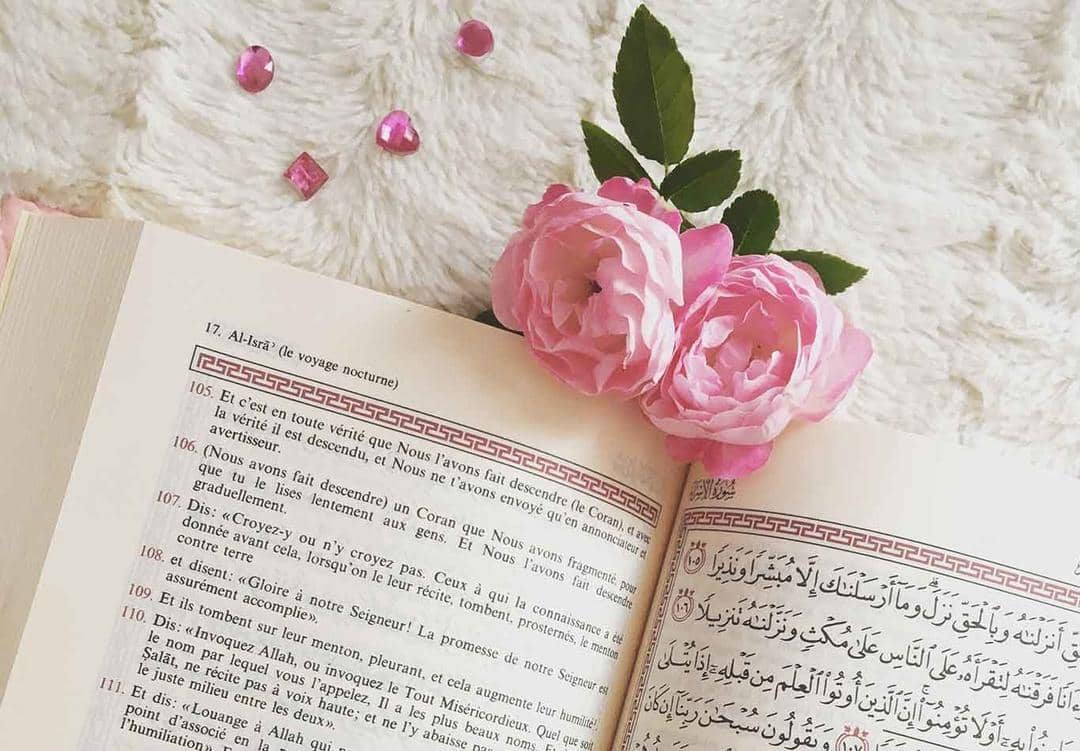 17. Al-Isrāʾ (le voyage nocturne)
105. Et c'est en toute vérité que Nous l'avons fait descendre (le Coran), et avec
la vérité il est descendu, et Nous ne t'avons envoyé qu'en annonciateur et
avertisseur.
106. (Nous avons fait descendre) un Coran que Nous avons fragmenté, pour
que tu le lises lentement aux gens. Et Nous l'avons fait descendre
graduellement.
107. Dis: «Croyez-y ou n'y croyez pas. Ceux à qui la connaissance a été
donnée avant cela, lorsqu'on le leur récite, tombent, prosternés, le menton
contre terre
108. et disent: «Gloire à notre Seigneur! La promesse de notre Seigneur est
assurément accomplie».
109. Et ils tombent sur leur menton, pleurant, et cela augmente leur humilité!
110. Dis: «Invoquez Allah, ou invoquez le Tout Miséricordieux. Quel que soit
le nom par lequel vous l'appelez, Il a les plus beaux noms. Et
Ṣalât, ne récite pas à voix haute; et ne l'y abaisse pas
le juste milieu entre les deux».
111. Et dis: «Louange à Allah qui
point d'associé en la
l'humiliation».
سُورَةُ الإِسْرَاءِ
أَنزَلْنَٰهُ وَبِٱلْحَقِّ نَزَلَ وَمَآ أَرْسَلْنَٰكَ إِلَّا مُبَشِّرًا وَنَذِيرًا ١٠٥
فَرَقْنَٰهُ لِتَقْرَأَهُۥ عَلَى ٱلنَّاسِ عَلَىٰ مُكْثٍ وَنَزَّلْنَٰهُ تَنزِيلًا ١٠٦
أَوْ لَا تُؤْمِنُوٓا۟ إِنَّ ٱلَّذِينَ أُوتُوا۟ ٱلْعِلْمَ مِن قَبْلِهِۦٓ إِذَا يُتْلَىٰ
وَيَقُولُونَ سُبْحَٰنَ رَبِّنَآ إِن كَانَ